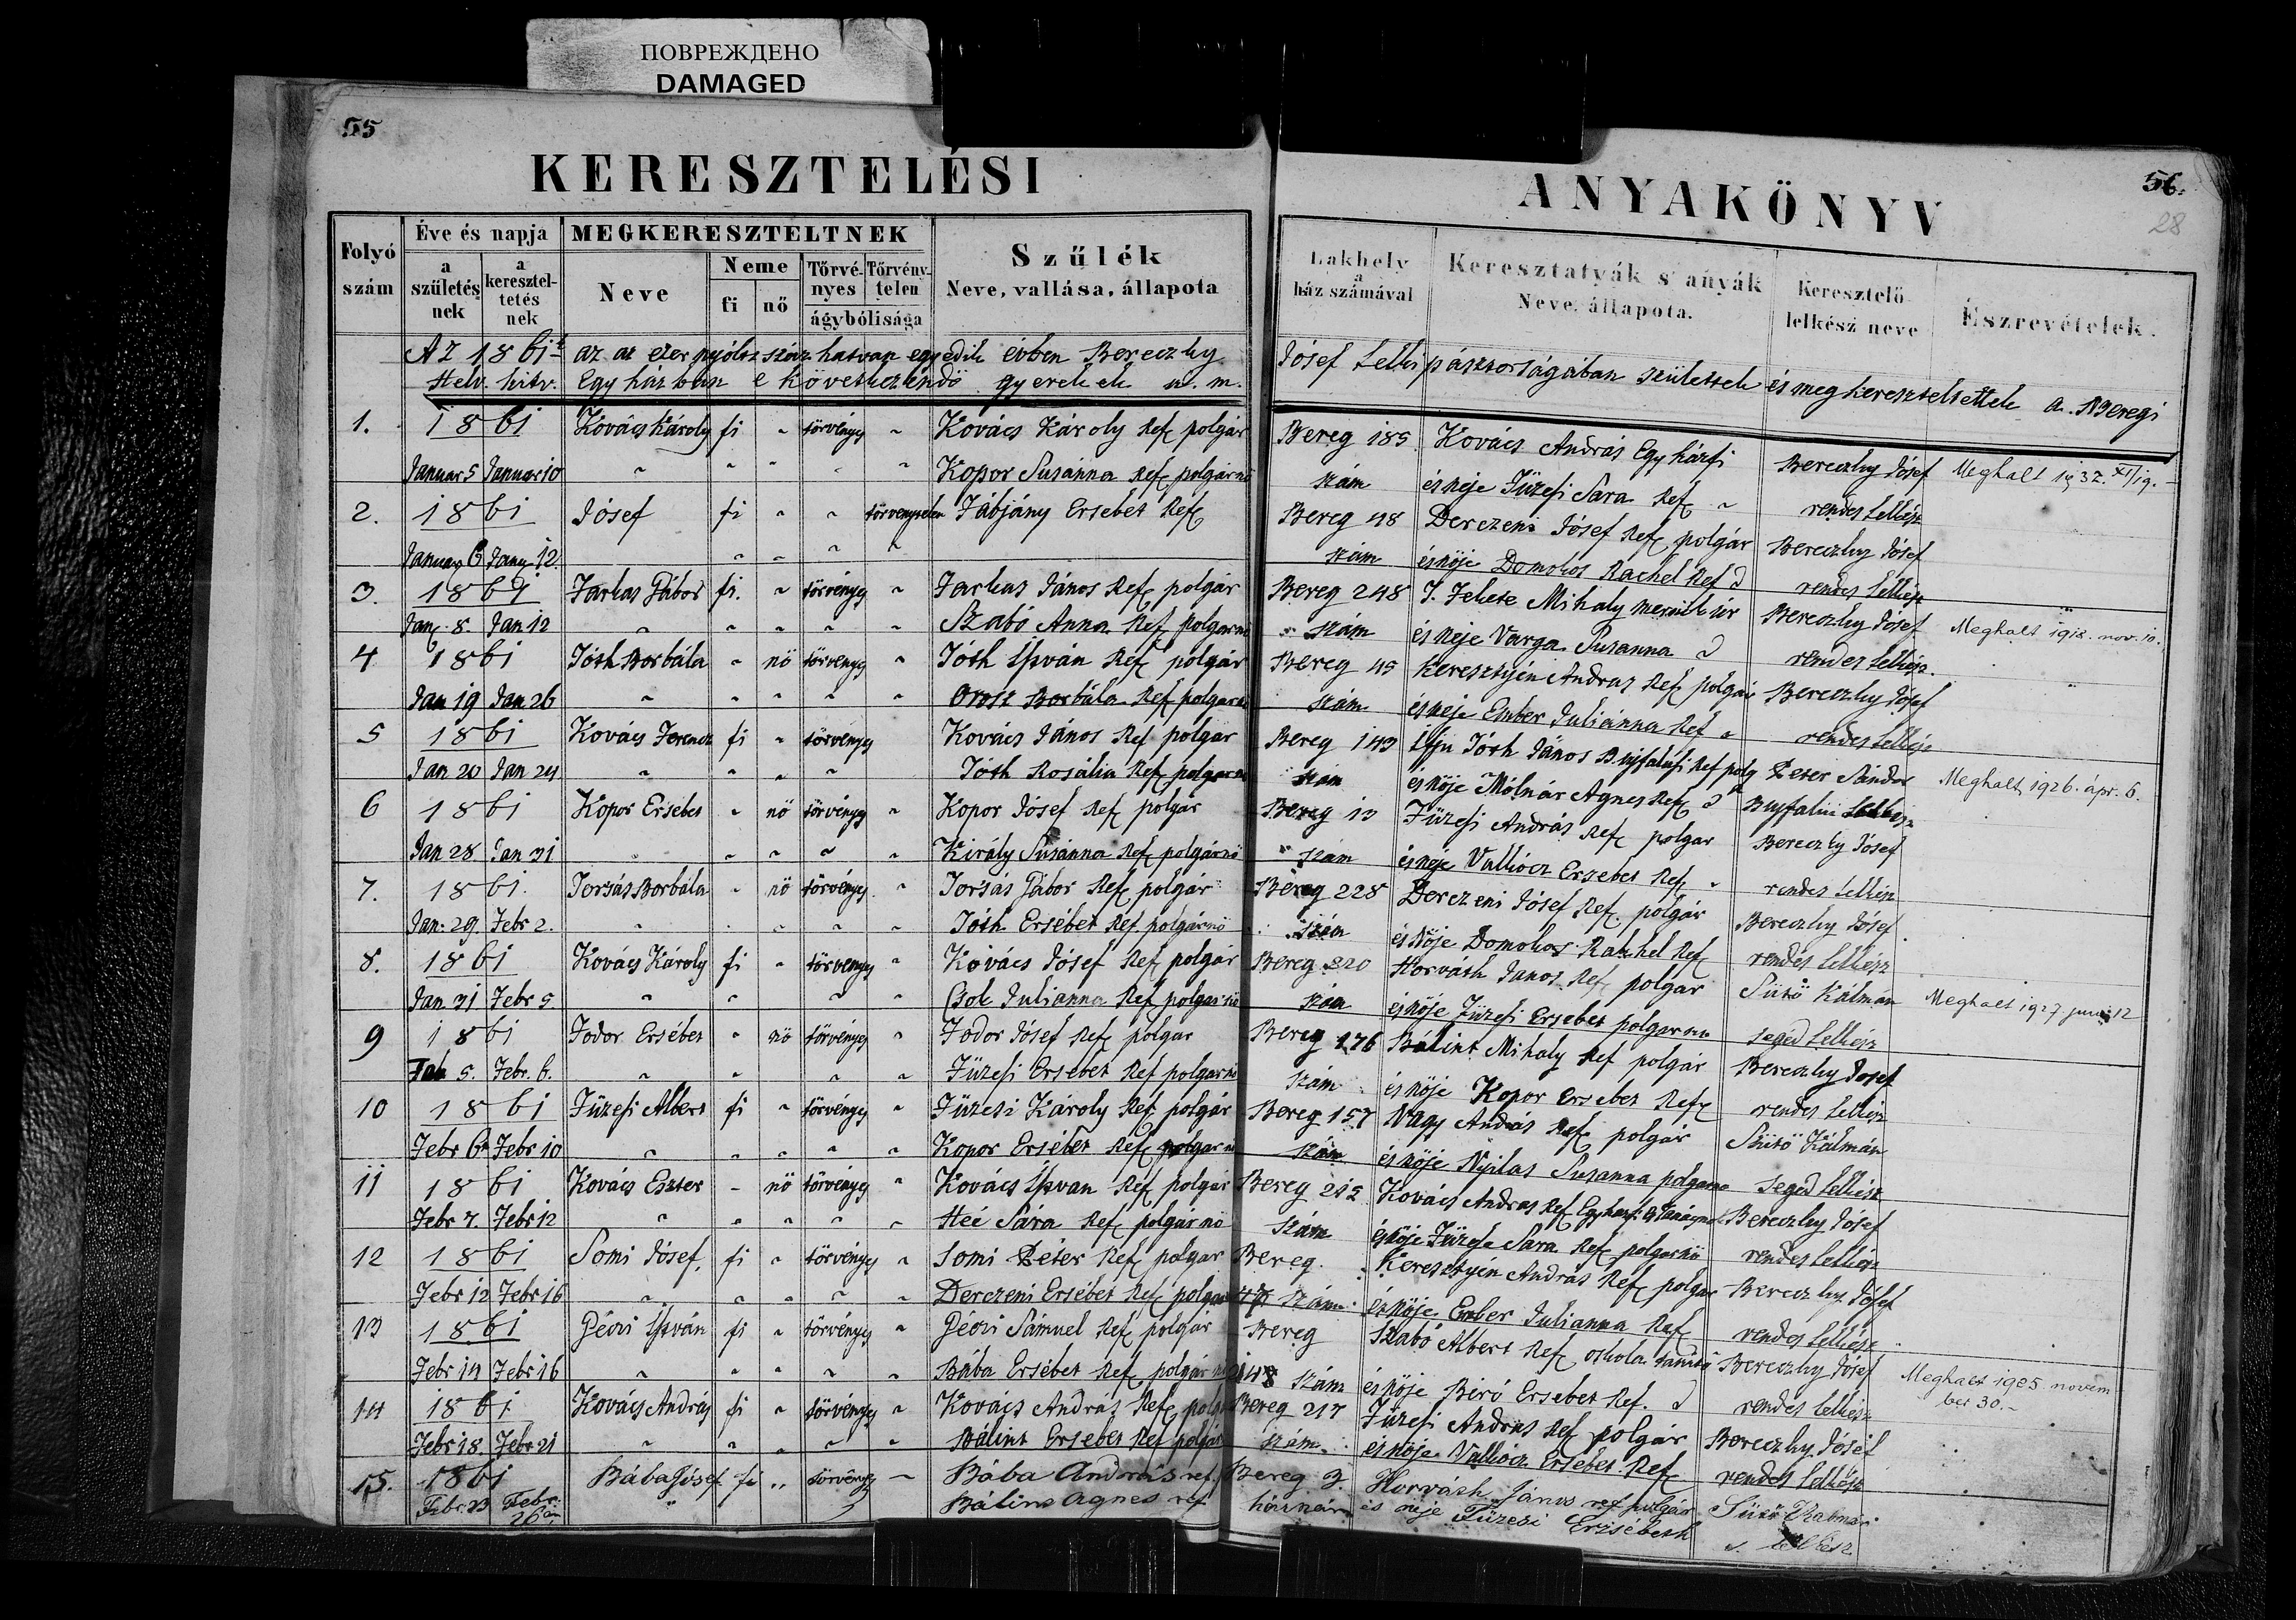 ПОВРЕЖДЕНО
DAMAGED
55
56.
28
KERESZTELÉSI ANYAKÖNYV
Folyó szám
Éve és napja
a születés nek
a keresztel- tetés nek
MEGKERESZTELTNEK
Neve
Neme
fi
nő
Törvé- nyes
Törvény- telen
ágybólisága
Szűlék
Neve, vallása, állapota
Lakhely a ház számával
Keresztatyák s anyák
Neve, állapota.
Keresztelő lelkész neve
Észrevételek.
Az 1861 az az ezer nyólcz száz hatvan egyedik évben Bereczky Jósef Lelki pásztorságában születtek és meg kereszteltettek a Beregi
Helv. hitv. Egyházban e következendö gyerekek u. m.
1. 1861 Kovács Károly fi " törvényes " Kovács Károly Ref polgár Bereg 185 Kovács András Egyházfi Bereczky Jósef Meghalt 1932. XI/19.
Januar 5 Januar 10 " " " " " Kopor Susánna Ref polgárnö szám és neje Füzesi Sara Ref " rendes Lelkész
2. 1861 Jósef fi " " törvénytelen Fábjány Ersebet Ref Bereg 48 Derczeni Jósef Ref polgár Bereczky Jósef
Januar 6 Janu 12. " " " " szám és nöje Domokos Rachel Ref rendes Lelkész
3. 1861 Farkas Gábor fi. " törvényes " Farkas János Ref polgár Bereg 248 Fekete Mihaly úr Bereczky Jósef Meghalt 1918. nov. 10.
Jan 8. Jan 12 " " " " " Szabó Anna Ref polgarnö szám és neje Varga Susanna rendes Lelkész
4 1861 Tóth Borbála " nö törvényes " Tóth István Ref polgár Bereg 45 Keresztyén Andras Ref polgár Bereczky Jósef
Jan 19 Jan 26 " " " " " Orosz Borbála Ref polgarnö szám és neje Ember Juliánna Ref " rendes Lelkész
5 1861 Kovács Ferencz fi " törvényes Kovács János Ref polgar Bereg 143 Ifju Tóth János B. ujfalusi Ref polg Peter Sándor Meghalt 1926. ápr. 6.
Jan 20 Jan 24 " " " " Tóth Rosália Ref polgarnö szám és nöje Mólnár Agnes Ref Bujfalui Lelkész
6 1861 Kopor Ersébet " nö törvényes " Kopor Jósef Ref polgár Bereg 13 Füzesi András Ref polgar Bereczky Jósef
Jan 28 Jan 31 " " " " Király Susánna Ref polgárnö szám és neje Vallócz Ersebet Ref " rendes Lelkész
7. 1861. Forsás Borbála " nö törvényes " Forsás Gábor Ref polgár Bereg 228 Derczeni Jósef Ref. polgár Bereczky Jósef
Jan: 29. Febr 2. " " " " " Tóth Ersébet Ref polgárnö szám és Nöje Domokos Rachel Ref rendes Lelkész
8. 1861 Kovács Károly fi " törvényes " Kovács Jósef Ref polgár Bereg 220 Horváth Janos Ref polgar Sütö Kálmán Meghalt 1927 juni 12
Jan 31 Febr 5. " " " " Csok Julianna Ref polgarnö szám és nöje Füzesi Ersebet polgarnö segéd Lelkész
9 1861 Fodor Ersébet " nö törvényes " Fodor Jósef Ref polgar Bereg 176 Bálint Mihaly Ref polgár Bereczky Josef
Feb 5. Febr. 6. " " " " Füzesi Ersebet Ref polgarnö szám és nöje Kopor Ersebet Ref rendes Lelkész
10 1861 Füzesi Albert fi " törvényes " Füzesi Károly Ref polgár Bereg 157 Nagy András Ref polgár Sütö Kálmán
Febr 6 Febr 10 " " " " " Kopor Ersébet Ref polgarnö szám és nöje Nyilas Susanna polgarnö segéd Lelkész
11 1861 Kovács Eszter - nö törvényes " Kovács Istvan Ref polgár Bereg 212 Kovács Andras Ref Egyházfi Bereczky Jósef
Febr 7. Febr 12 " " " " " Héé Sára Ref polgárnö szám és nöje Füzesi Sara Ref polgarnö rendes Lelkész
12 1861 Somi Jósef, fi " törvényes " Somi Péter Ref polgar Bereg. Keresztyen András Ref polgar Bereczky Jósef
Febr 12 Febr 16 " " " " " Derczeni Ersébet Ref polgar szám és nöje Ember Julianna Ref rendes Lelkész
13 1861 Géczi István fi " törvényes " Géczi Sámuel Ref polgár Bereg Szabó Albert Ref oskola tanitó Bereczky Jósef Meghalt 1905 novem-
Febr 14 Febr 16 " " " " " Bába Ersébet Ref polgár 148 szám és nöje Biró Ersebet Ref. rendes Lelkész ber 30.-
14 1861 Kovács András fi " törvényes " Kovács András Ref polgár Bereg 217 Füzesi Andras Ref polgár Bereczky Jósef
Febr 18. Febr 21 " " " " " Bálint Ersebet Ref polgár szám. és nöje Vallócz Ersébet Ref rendes Lelkész
15. 1861 Bába Jósef fi " törvény " Bába András ref. Bereg 9. Horváth János ref polgár Sütö Kalman
Febr. 23 Febr. 26án " Bálint Agnes ref házszám és neje Füzesi Erzsébeth s. lelkész